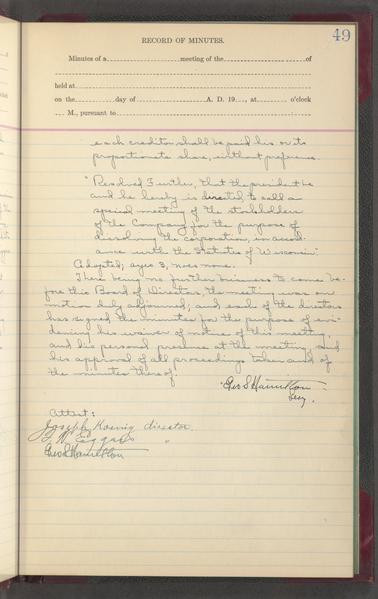 49
RECORD OF MINUTES.
Minutes of a meeting of the of
held at
on the day of A. D. 19 , at o'clock
M., pursuant to
each creditor shall be paid his or its
proportionate share, without preference.
"Resolved Further, that the president be
and he hereby is directed to call a
special meeting of the stockholders
of the Company for the purpose of
dissolving the corporation, in accord-
ance with the Statutes of Wisconsin."
Adopted; ayes 3, noes none.
There being no further business to come be-
fore this Board of Directors, the meeting was on
motion duly adjourned; and each of the directors
has signed the minutes for the purpose of evi-
dencing his waiver of notice of this meeting,
and his personal presence at the meeting, and
his approval of all proceedings taken and of
the minutes thereof.
Geo S Hamilton
Secy.
Attest:
Joseph Koenig director
"
Geo S Hamilton